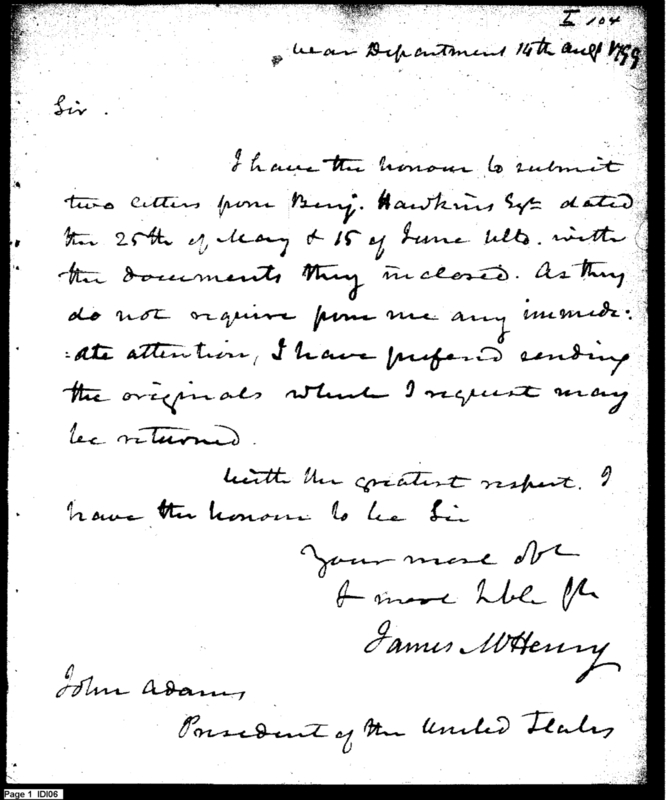 I 104
War Department 14th augt 1799
Sir.
I have the honour to submit
two letters from Benj. Hawkins Esqr dated
the 25th of May & 15 of June ulto. with
the documents they inclosed. As they
do not require from me any immedi:
:ate attention, I have prefered sending
the originals which I request may
be returned.
with the greatest respect. I
have the honour to be Sir
Your most obt
& most hble
James McHenry
John Adams
President of the United States
Page 1 IDI06